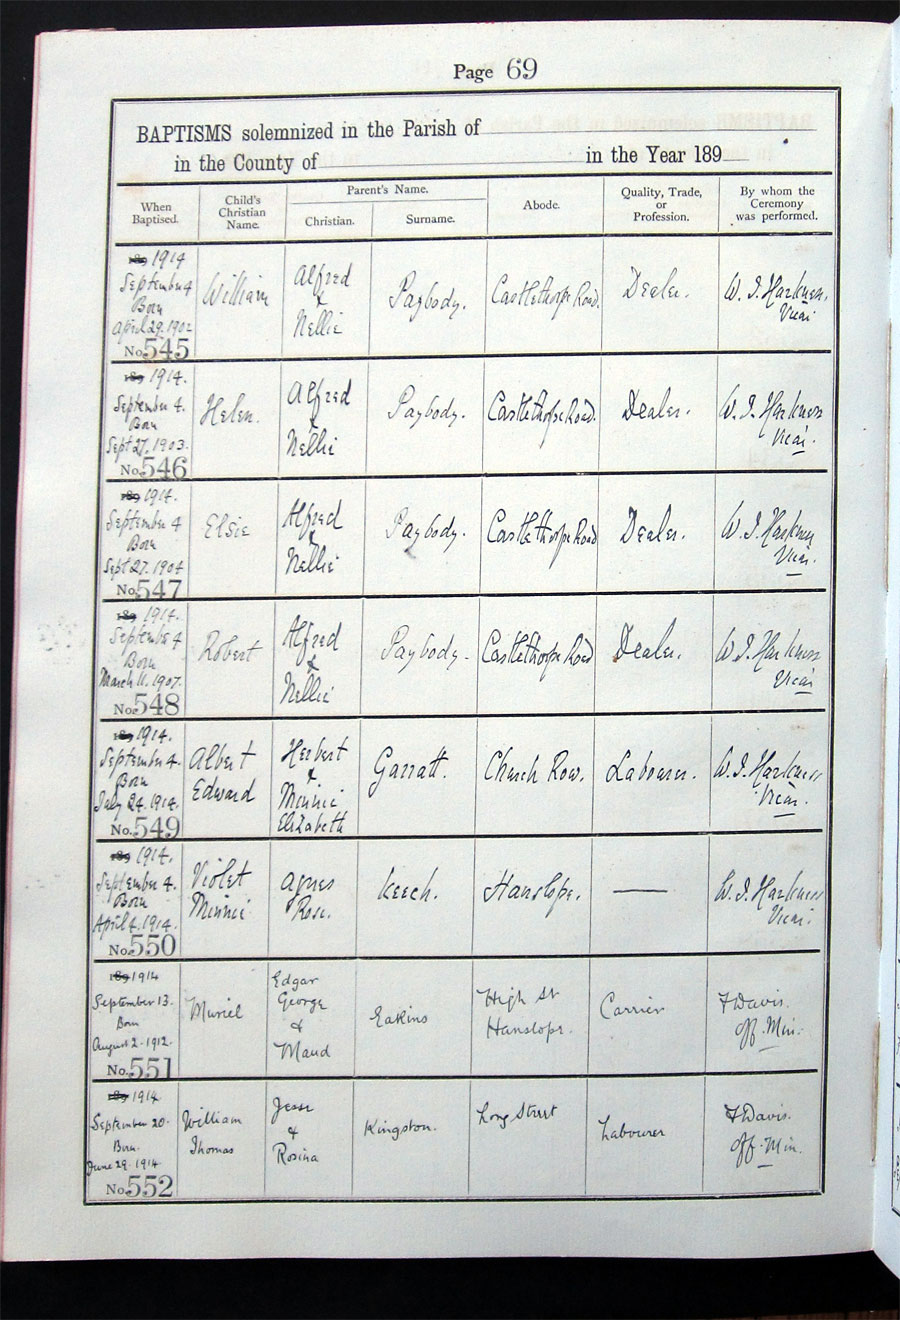 Page 69
BAPTISMS solemnized in the Parish of
in the County of in the Year 189
When Baptised. Child's Christian Name. Parent's Name. Christian. Surname. Abode. Quality, Trade, or Profession. By whom the Ceremony was performed.
189 1914
September 4
Born
April 29. 1902
No. 545
William
Alfred
&
Nellie
Paybody.
Castlethorpe Road.
Dealer.
W. J. Harkness,
Vicar
189 1914.
September 4.
Born
Sept 27. 1903.
No. 546
Helen.
Alfred
&
Nellie
Paybody.
Castlethorpe Road.
Dealer.
W. J. Harkness
Vicar.
189 1914.
September 4
Born
Sept 27. 1904
No. 547
Elsie
Alfred
&
Nellie
Paybody.
Castlethorpe Road
Dealer.
W. J. Harkness
Vicar.
189 1914.
September 4
Born
March 11. 1907.
No. 548
Robert
Alfred
&
Nellie
Paybody.
Castlethorpe Road
Dealer.
W. J. Harkness
Vicar
189 1914.
September 4.
Born
July 24. 1914.
No. 549
Albert
Edward
Herbert
&
Minnie
Elizabeth
Garratt.
Church Row.
Labourer.
W. J. Harkness
Vicar.
189 1914.
September 4.
Born
April 4. 1914.
No. 550
Violet
Minnie
Agnes
Rose.
Keech.
Hanslope.
—
W. J. Harkness
Vicar.
189 1914
September 13.
Born
August 2. 1912.
No. 551
Muriel
Edgar
George
&
Maud
Eakins
High St
Hanslope.
Carrier
F Davis.
Off. Min.
189 1914
September 20.
Born
June 29. 1914
No. 552
William
Thomas
Jesse
&
Rosina
Kingston.
Long Street
Labourer
F Davis.
Off. Min.